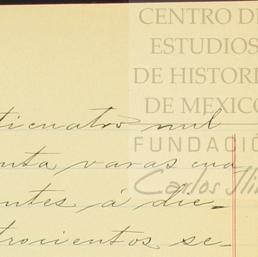 CENTRO DE
ESTUDIOS
DE HISTORI
DE MÉXICO
FUNDACIÓ
Carlos Sli
ticuatro mil
nta varas cua
ntes á die-
trocientos se-